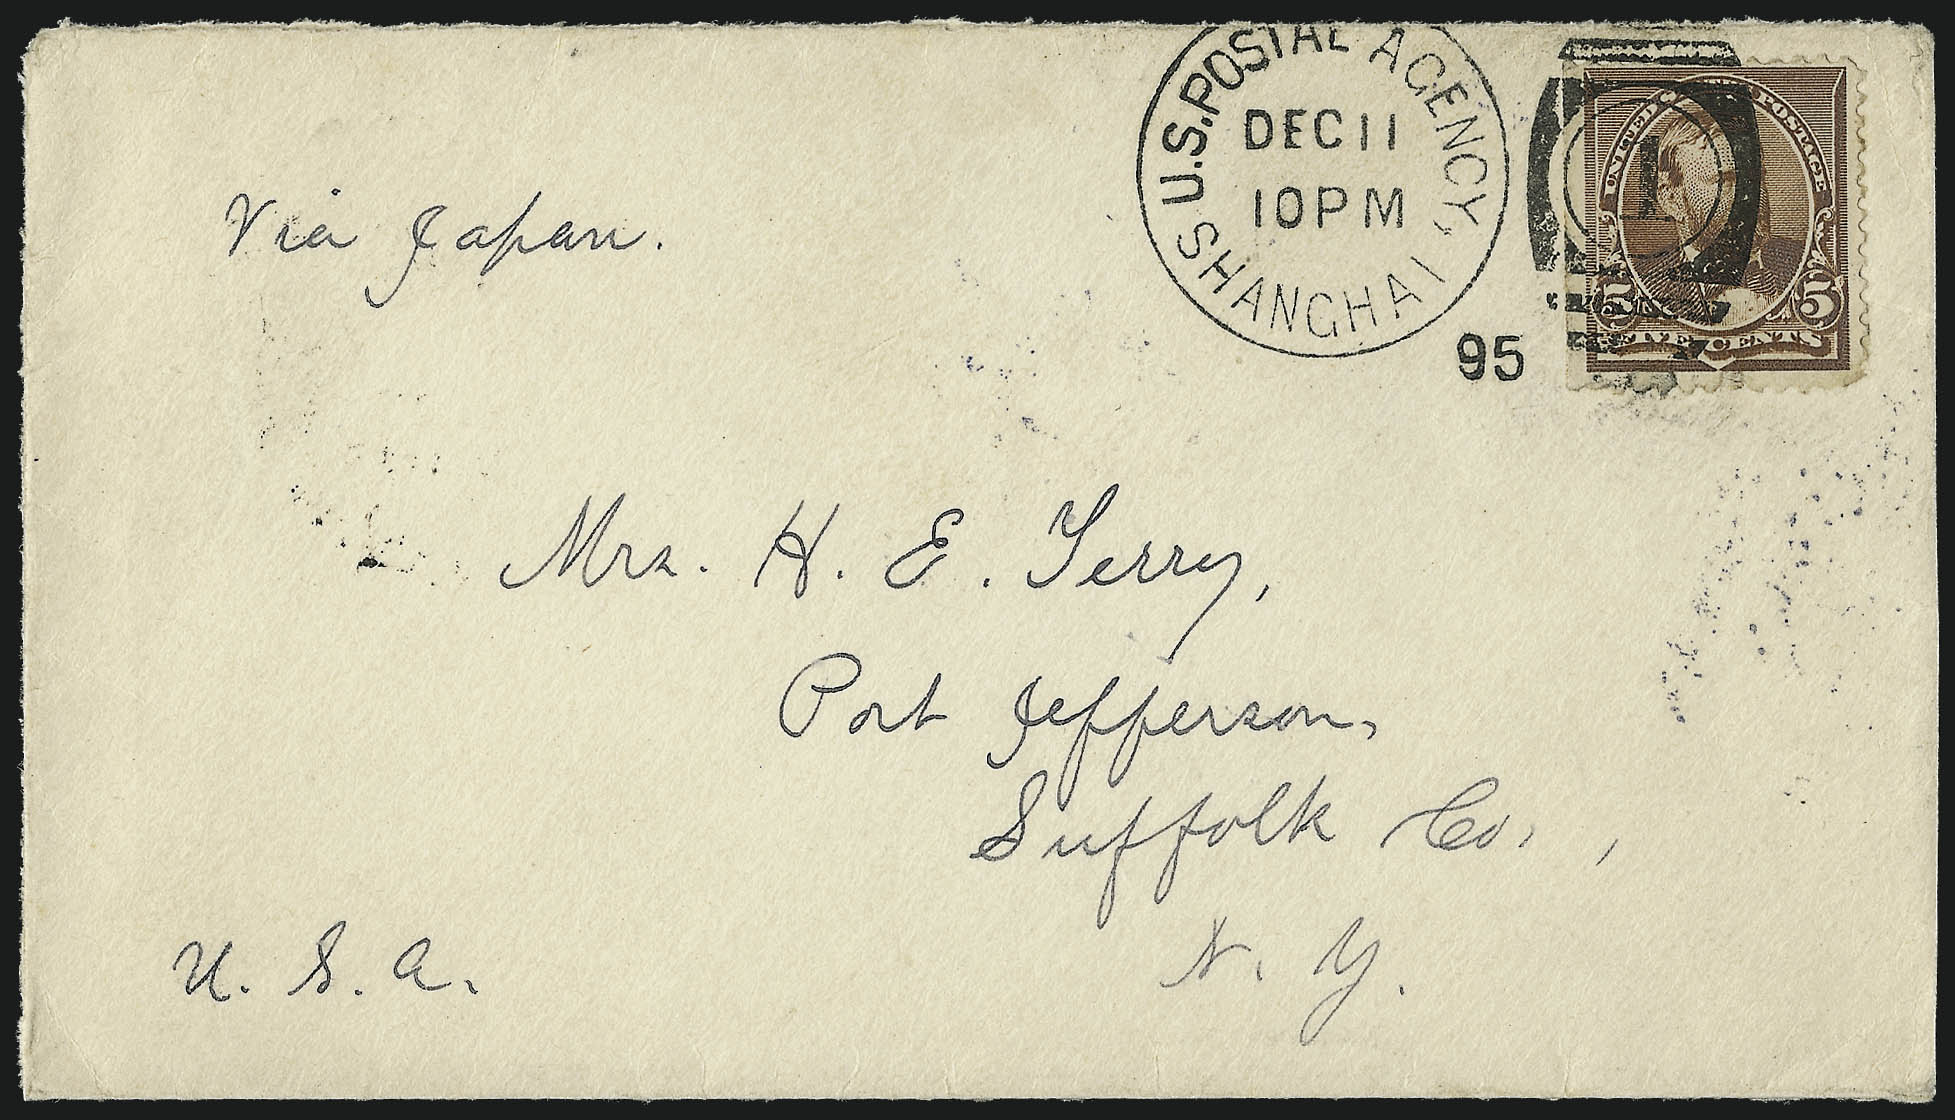 U.S. POSTAL AGENCY,
SHANGHAI
DEC 11
10 PM
95
1
UNITED STATES POSTAGE
5 5
FIVE CENTS
Via Japan.
Mrs. H. E. Terry,
Port Jefferson,
Suffolk Co.,
N. Y.
U. S. A.